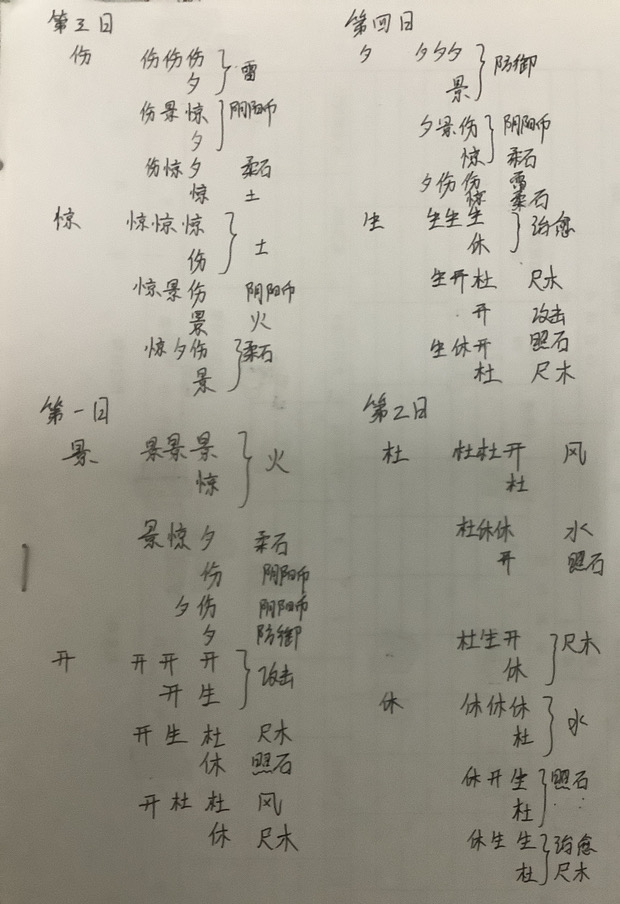 第三日
伤 伤伤伤 雷
夕
伤景惊 阴阳师
夕
伤惊夕 柔石
惊 土
惊 惊惊惊 土
伤
惊景伤 阴阳师
景 火
惊夕伤 柔石
景
第四日
夕 夕夕夕 防御
景
夕景伤 阴阳师
惊 柔石
夕伤伤 雷
惊 柔石
生 生生生 治愈
休
生开杜 尺木
开 攻击
生休开 照石
杜 尺木
第一日
景 景景景 火
惊
景惊夕 柔石
伤 阴阳师
夕伤 阴阳师
夕 防御
开 开开开 攻击
开生
开生杜 尺木
休 照石
开杜杜 风
休 尺木
第2日
杜 杜杜开 风
杜
杜休休 水
开 照石
杜生开 尺木
休
休 休休休 水
杜
休开生 照石
杜
休生生 治愈
杜 尺木